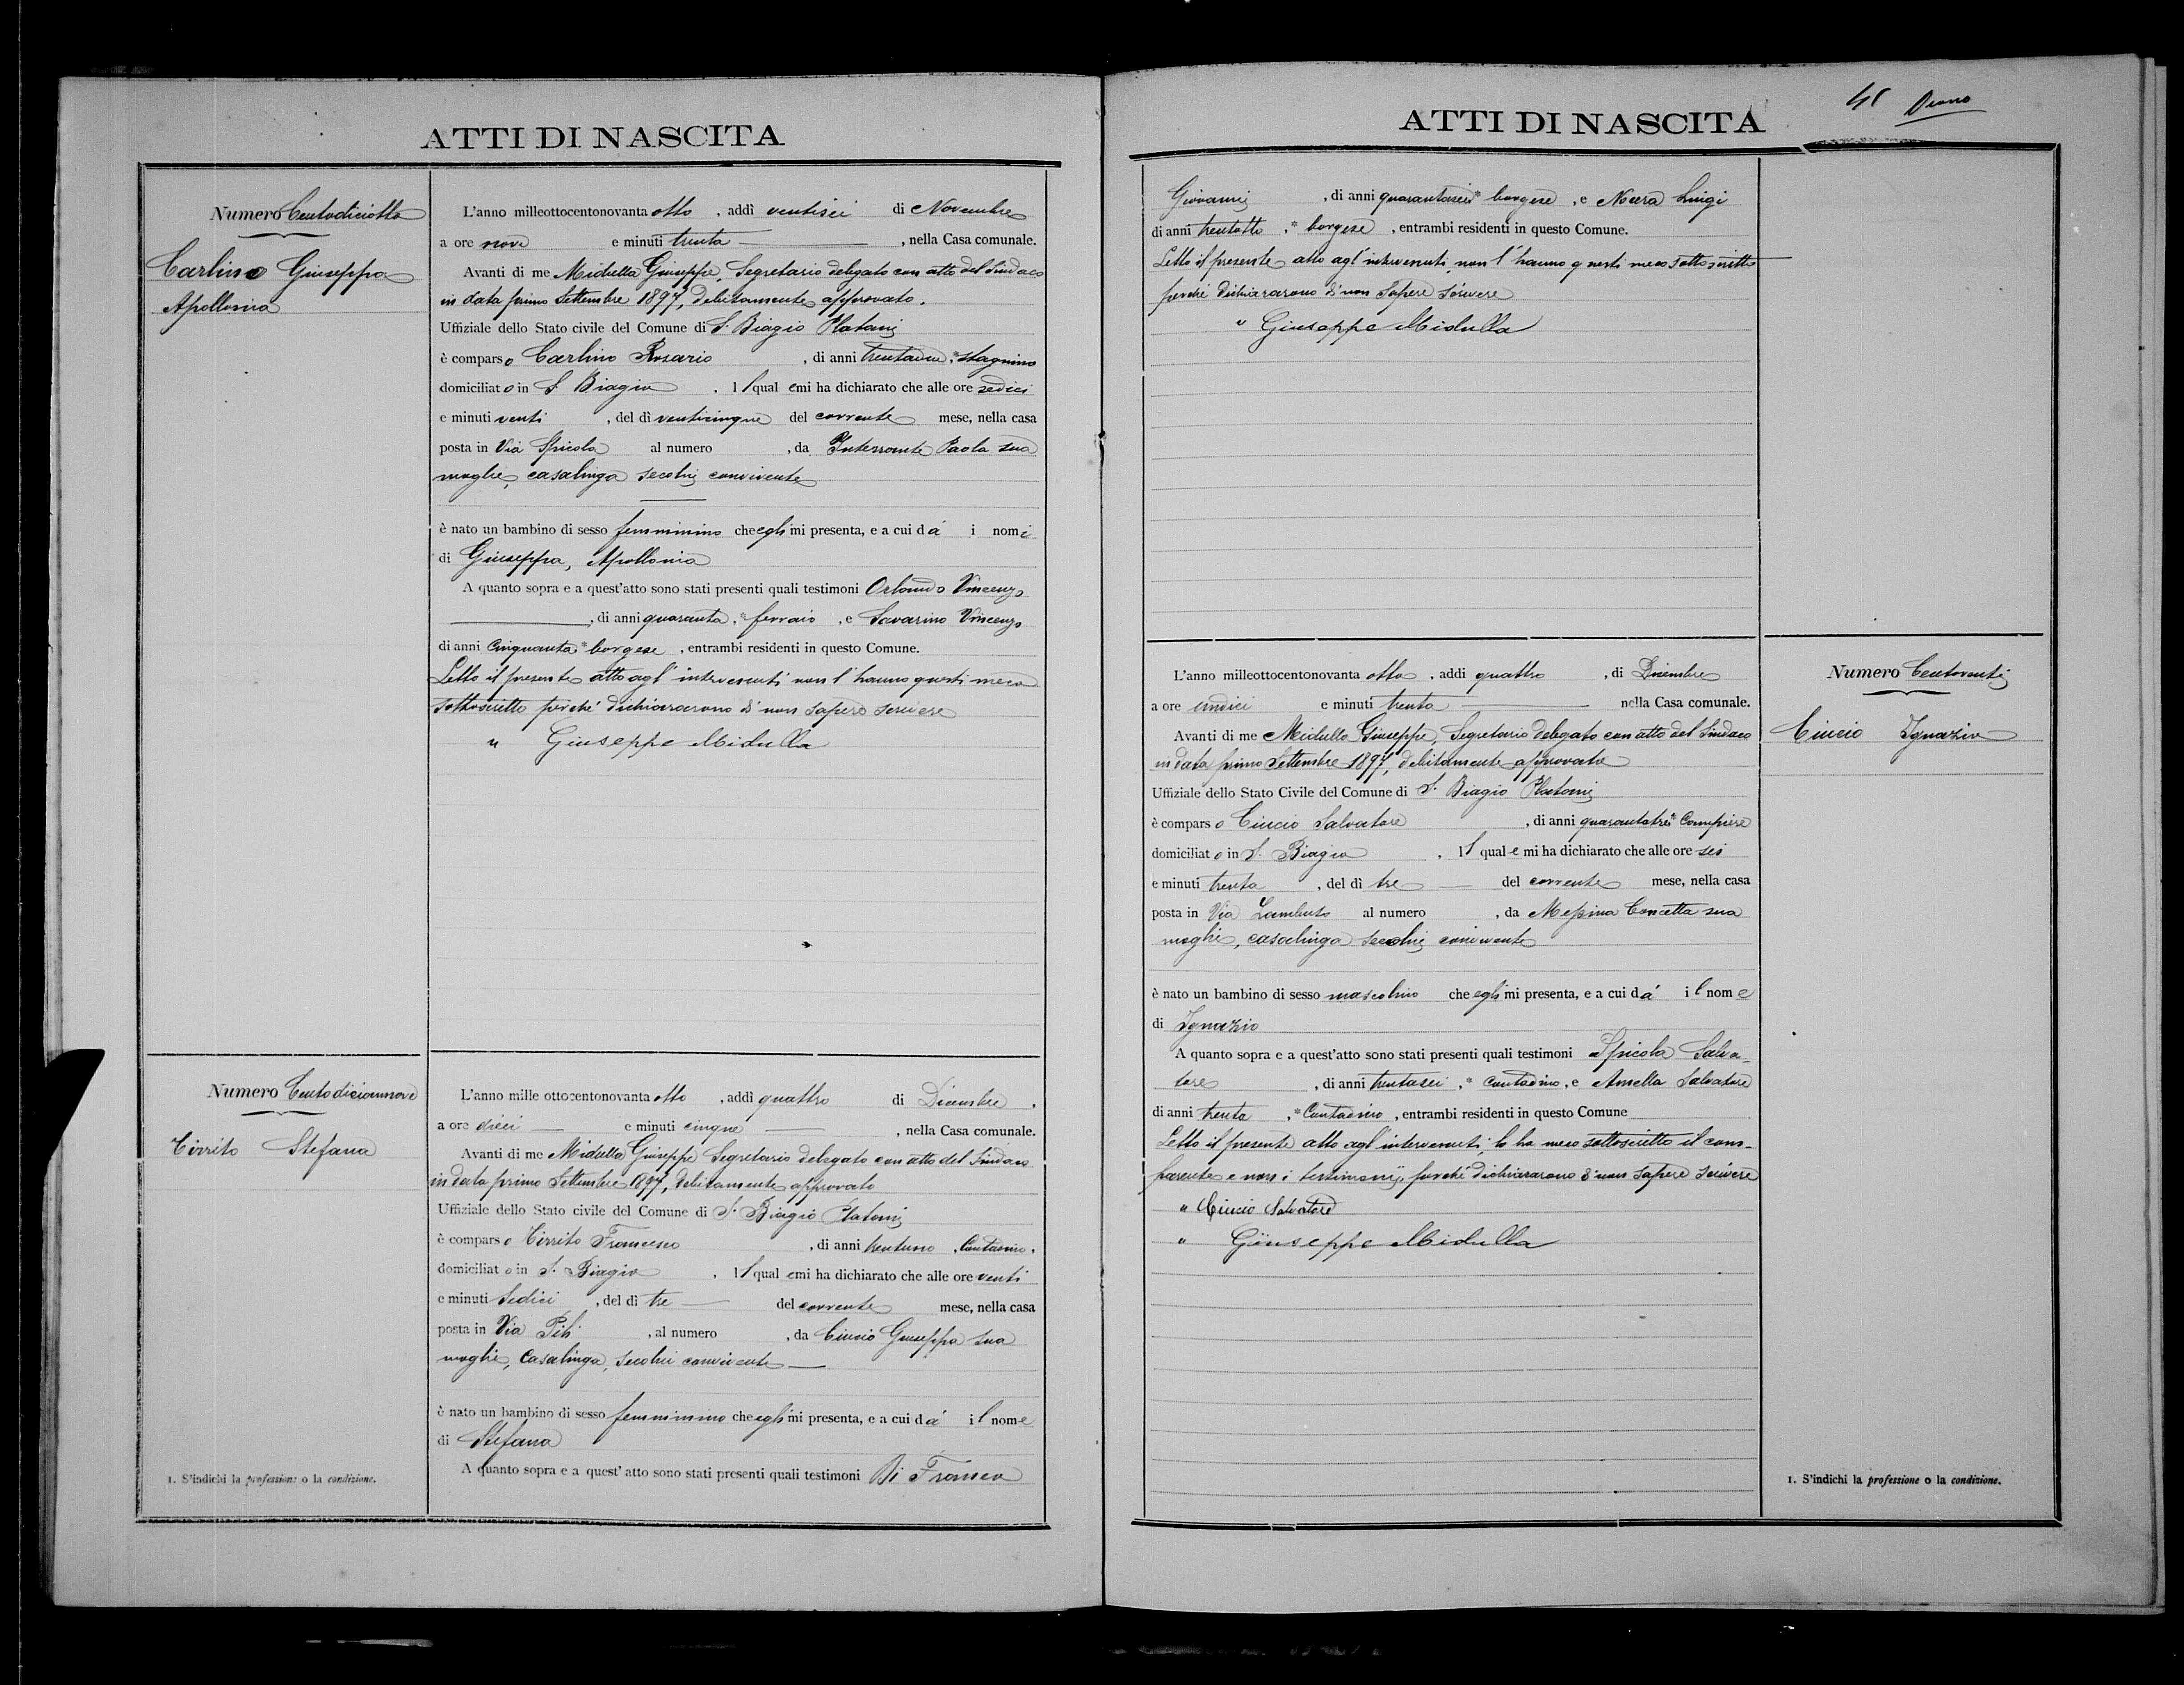 ATTI DI NASCITA
Numero Centodiciotto
Carlino Giuseppa
Apollonia
L'anno milleottocentonovanta otto, addì ventisei di Novembre
a ore nove e minuti trenta, nella Casa comunale.
Avanti di me Midulla Giuseppe, Segretario delegato con atto del Sindaco
in data primo Settembre 1897, debitamente approvato.
Uffiziale dello Stato civile del Comune di S. Biagio Platani
è comparso Carlino Rosario, di anni, * stagnino
domiciliato in S. Biagio, il quale mi ha dichiarato che alle ore sedici
e minuti venti, del dì venticinque del corrente mese, nella casa
posta in Via Spicola al numero , da Interrante Paola sua
moglie, casalinga seco lui convivente
è nato un bambino di sesso femminino che egli mi presenta, e a cui dà i nomi
di Giuseppa, Apollonia
A quanto sopra e a quest'atto sono stati presenti quali testimoni Orlando Vincenzo
, di anni quaranta, * ferraio, e Savarino Vincenzo
di anni cinquanta * borgese, entrambi residenti in questo Comune.
Letto il presente atto agl'intervenuti non l'hanno questi meco
sottoscritto perché dichiararono di non sapere scrivere
" Giuseppe Midulla
Numero Centodiciannove
Cirrito Stefana
L'anno mille ottocentonovanta otto, addì quattro di Dicembre,
a ore dieci e minuti cinque, nella Casa comunale.
Avanti di me Midulla Giuseppe Segretario delegato con atto del Sindaco
in data primo Settembre 1897, debitamente approvato
Uffiziale dello Stato civile del Comune di S. Biagio Platani
è comparso Cirrito Francesco, di anni trentuno, Contadino,
domiciliato in S. Biagio, il quale mi ha dichiarato che alle ore venti
e minuti sedici, del dì tre del corrente mese, nella casa
posta in Via, al numero , da Ciucio Giuseppa sua
moglie, Casalinga, seco lui convivente
è nato un bambino di sesso femminino che egli mi presenta, e a cui dà il nome
di Stefana
A quanto sopra e a quest'atto sono stati presenti quali testimoni Di Franco
1. S'indichi la professione o la condizione.
ATTI DI NASCITA
41
Giovanni, di anni quarantasei * borgese, e Nocera Luigi
di anni trentotto, * borgese, entrambi residenti in questo Comune.
Letto il presente atto agl'intervenuti, non l'hanno questi meco sottoscritto
perché dichiararono di non sapere scrivere
" Giuseppe Midulla
Numero Centoventi
Ciucio Ignazio
L'anno milleottocentonovanta otto, addì quattro, di Dicembre
a ore undici e minuti trenta nella Casa comunale.
Avanti di me Midulla Giuseppe, Segretario delegato con atto del Sindaco
in data primo Settembre 1897, debitamente approvato
Uffiziale dello Stato Civile del Comune di S. Biagio Platani
è comparso Ciucio Salvatore, di anni quarantatre * Campiere
domiciliato in S. Biagio, il quale mi ha dichiarato che alle ore sei
e minuti trenta, del dì tre del corrente mese, nella casa
posta in Via Zambuto al numero , da Messina Concetta sua
moglie, casalinga seco lui convivente
è nato un bambino di sesso mascolino che egli mi presenta, e a cui dà il nome
di Ignazio
A quanto sopra e a quest'atto sono stati presenti quali testimoni Spicola Salva-
tore, di anni trentasei, * Contadino, e Amella Salvatore
di anni trenta, * Contadino, entrambi residenti in questo Comune
Letto il presente atto agl'intervenuti, lo ha meco sottoscritto il com-
parente e non i testimonij perché dichiararono di non sapere scrivere
" Ciucio Salvatore
" Giuseppe Midulla
1. S'indichi la professione o la condizione.